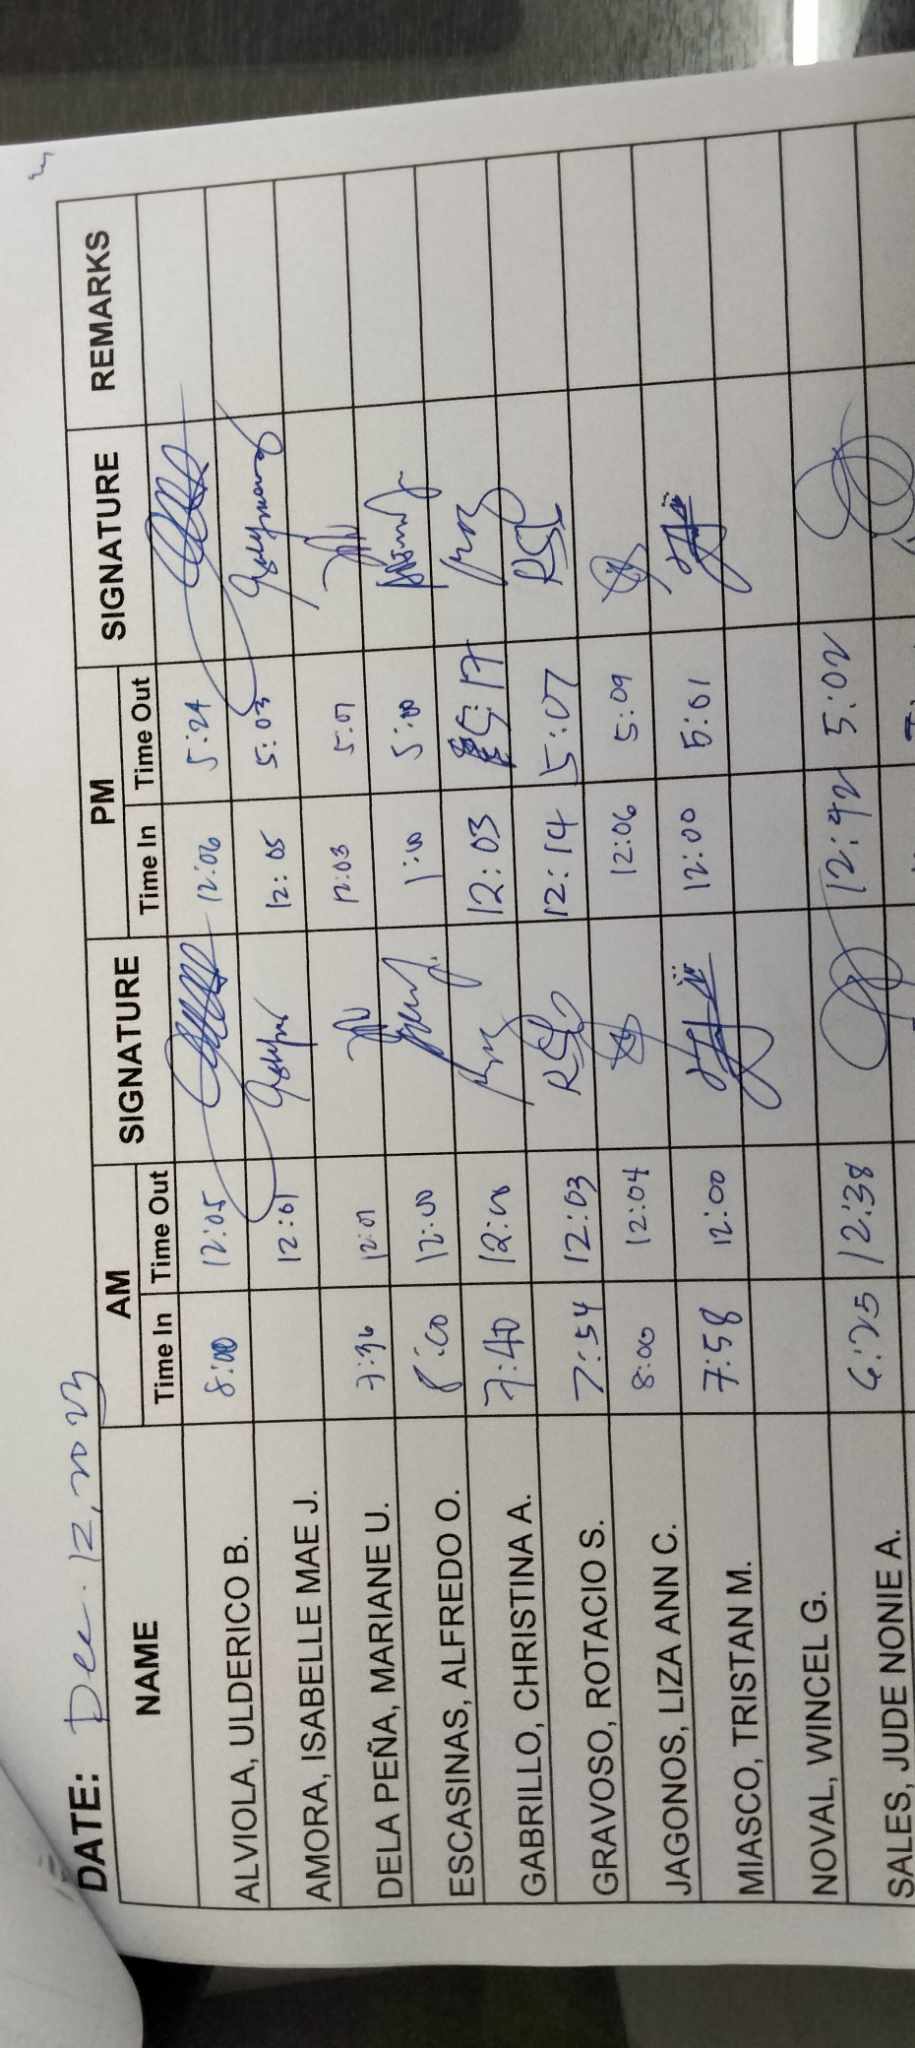 DATE: Dec. 12, 2023
NAME AM SIGNATURE PM SIGNATURE REMARKS
Time In Time Out Time In Time Out
ALVIOLA, ULDERICO B. 8:00 12:05 12:06 5:24
AMORA, ISABELLE MAE J. 12:01 12:05 5:03
DELA PEÑA, MARIANE U. 7:36 12:03
ESCASINAS, ALFREDO O. 8:00 12:00 1:00 5:00
GABRILLO, CHRISTINA A. 7:40 12:00 12:03 5:17
GRAVOSO, ROTACIO S. 7:54 12:03 12:14 5:07
JAGONOS, LIZA ANN C. 8:00 12:04 12:06 5:09
MIASCO, TRISTAN M. 7:58 12:00 12:00 5:01
NOVAL, WINCEL G.
SALES, JUDE NONIE A. 6:25 12:38 12:42 5:02